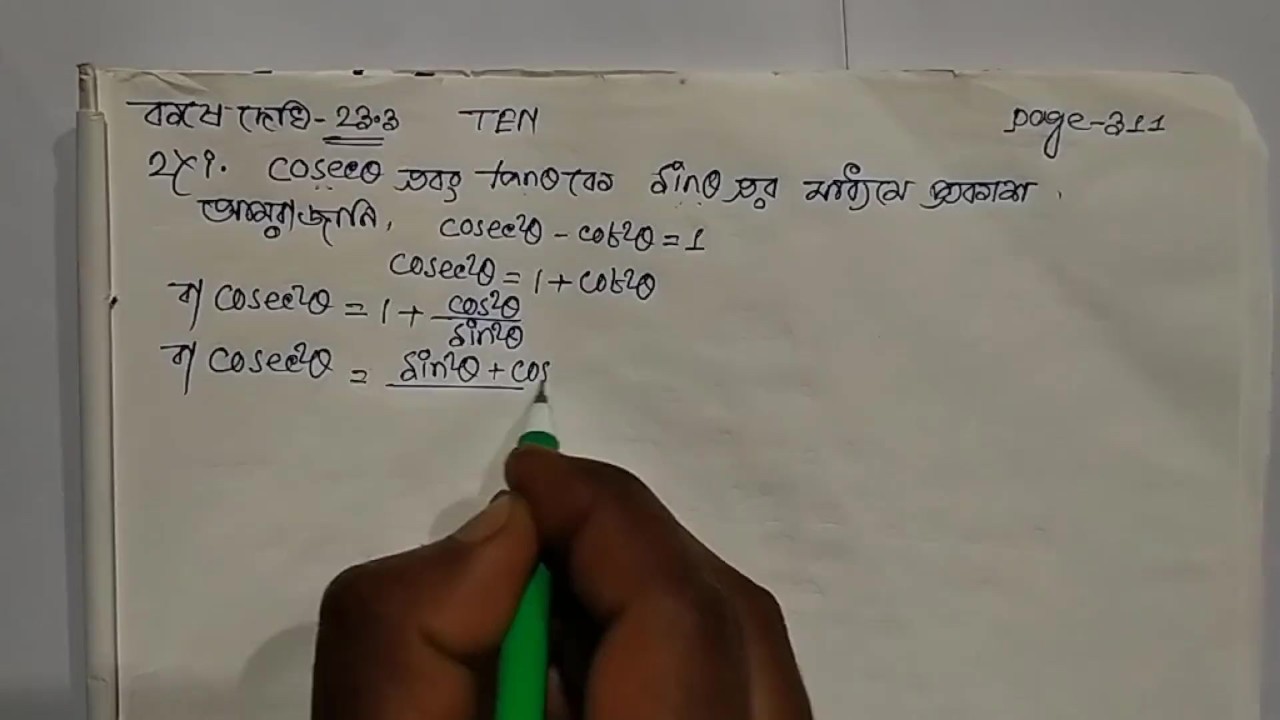 কষে দেখি - 23.3 TEN page-311
cosecθ এবং tanθ কে sinθ এর মাধ্যমে প্রকাশ .
আমরা জানি, cosec²θ - cot²θ = 1
cosec²θ = 1 + cot²θ
বা cosec²θ = 1 + cos²θ / sin²θ
বা cosec²θ = sin²θ + cos